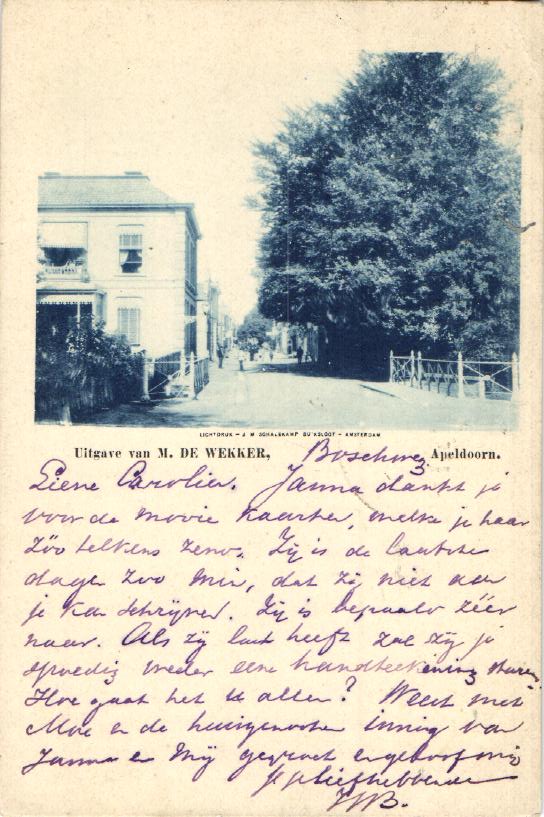 LICHTDRUK – J. M. SCHALEKAMP BUIKSLOOT – AMSTERDAM
Uitgave van M. DE WEKKER, Boschweg Apeldoorn.
Lieve Carolien. Janna dankt je
voor de mooie kaarten, welke je haar
zóó telkens zend. Zij is de laatste
dagen zoo min, dat zij niet aan
je kan schrijven. Zij is bepaald zéér
naar. Als zij lust heeft zal zij je
spoedig weder eene handteekening sturen.
Hoe gaat het u allen? Weest met
Moe en de huisgenooten innig van
Janna en Mij gegroet en geloof mij
je liefhebbende